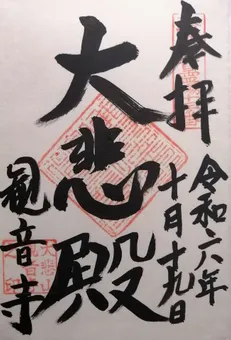 奉拝
令和六年
十月十九日
大悲殿
観音寺